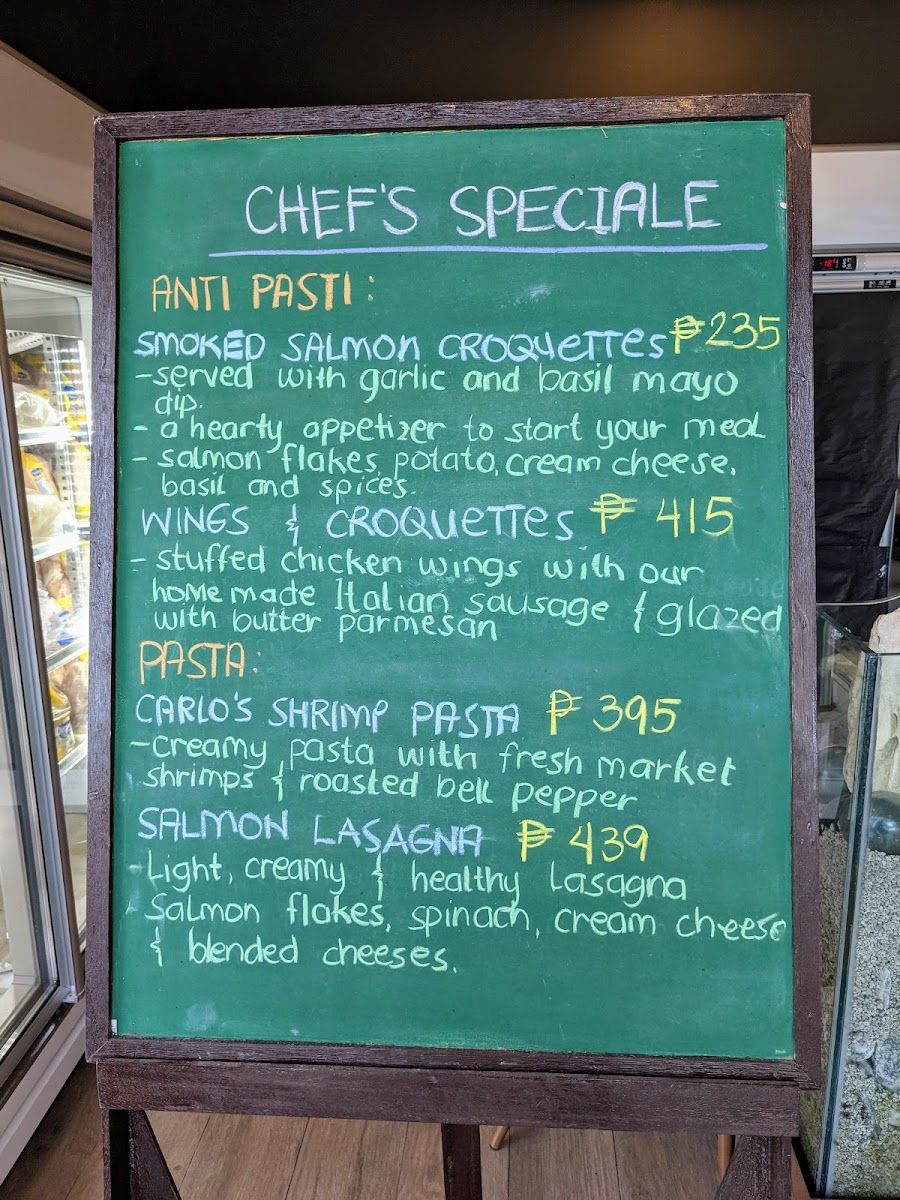 CHEF'S SPECIALE
ANTI PASTI:
SMOKED SALMON CROQUETTES ₱235
-served with garlic and basil mayo
dip.
- a hearty appetizer to start your meal
- salmon flakes, potato, cream cheese,
basil and spices.
WINGS & CROQUETTES ₱ 415
- stuffed chicken wings with our
home made Italian sausage & glazed
with butter parmesan
PASTA:
CARLO'S SHRIMP PASTA ₱ 395
-creamy pasta with fresh market
shrimps & roasted bell pepper
SALMON LASAGNA ₱ 439
-Light, creamy & healthy Lasagna
- Salmon flakes, spinach, cream cheese
& blended cheeses.